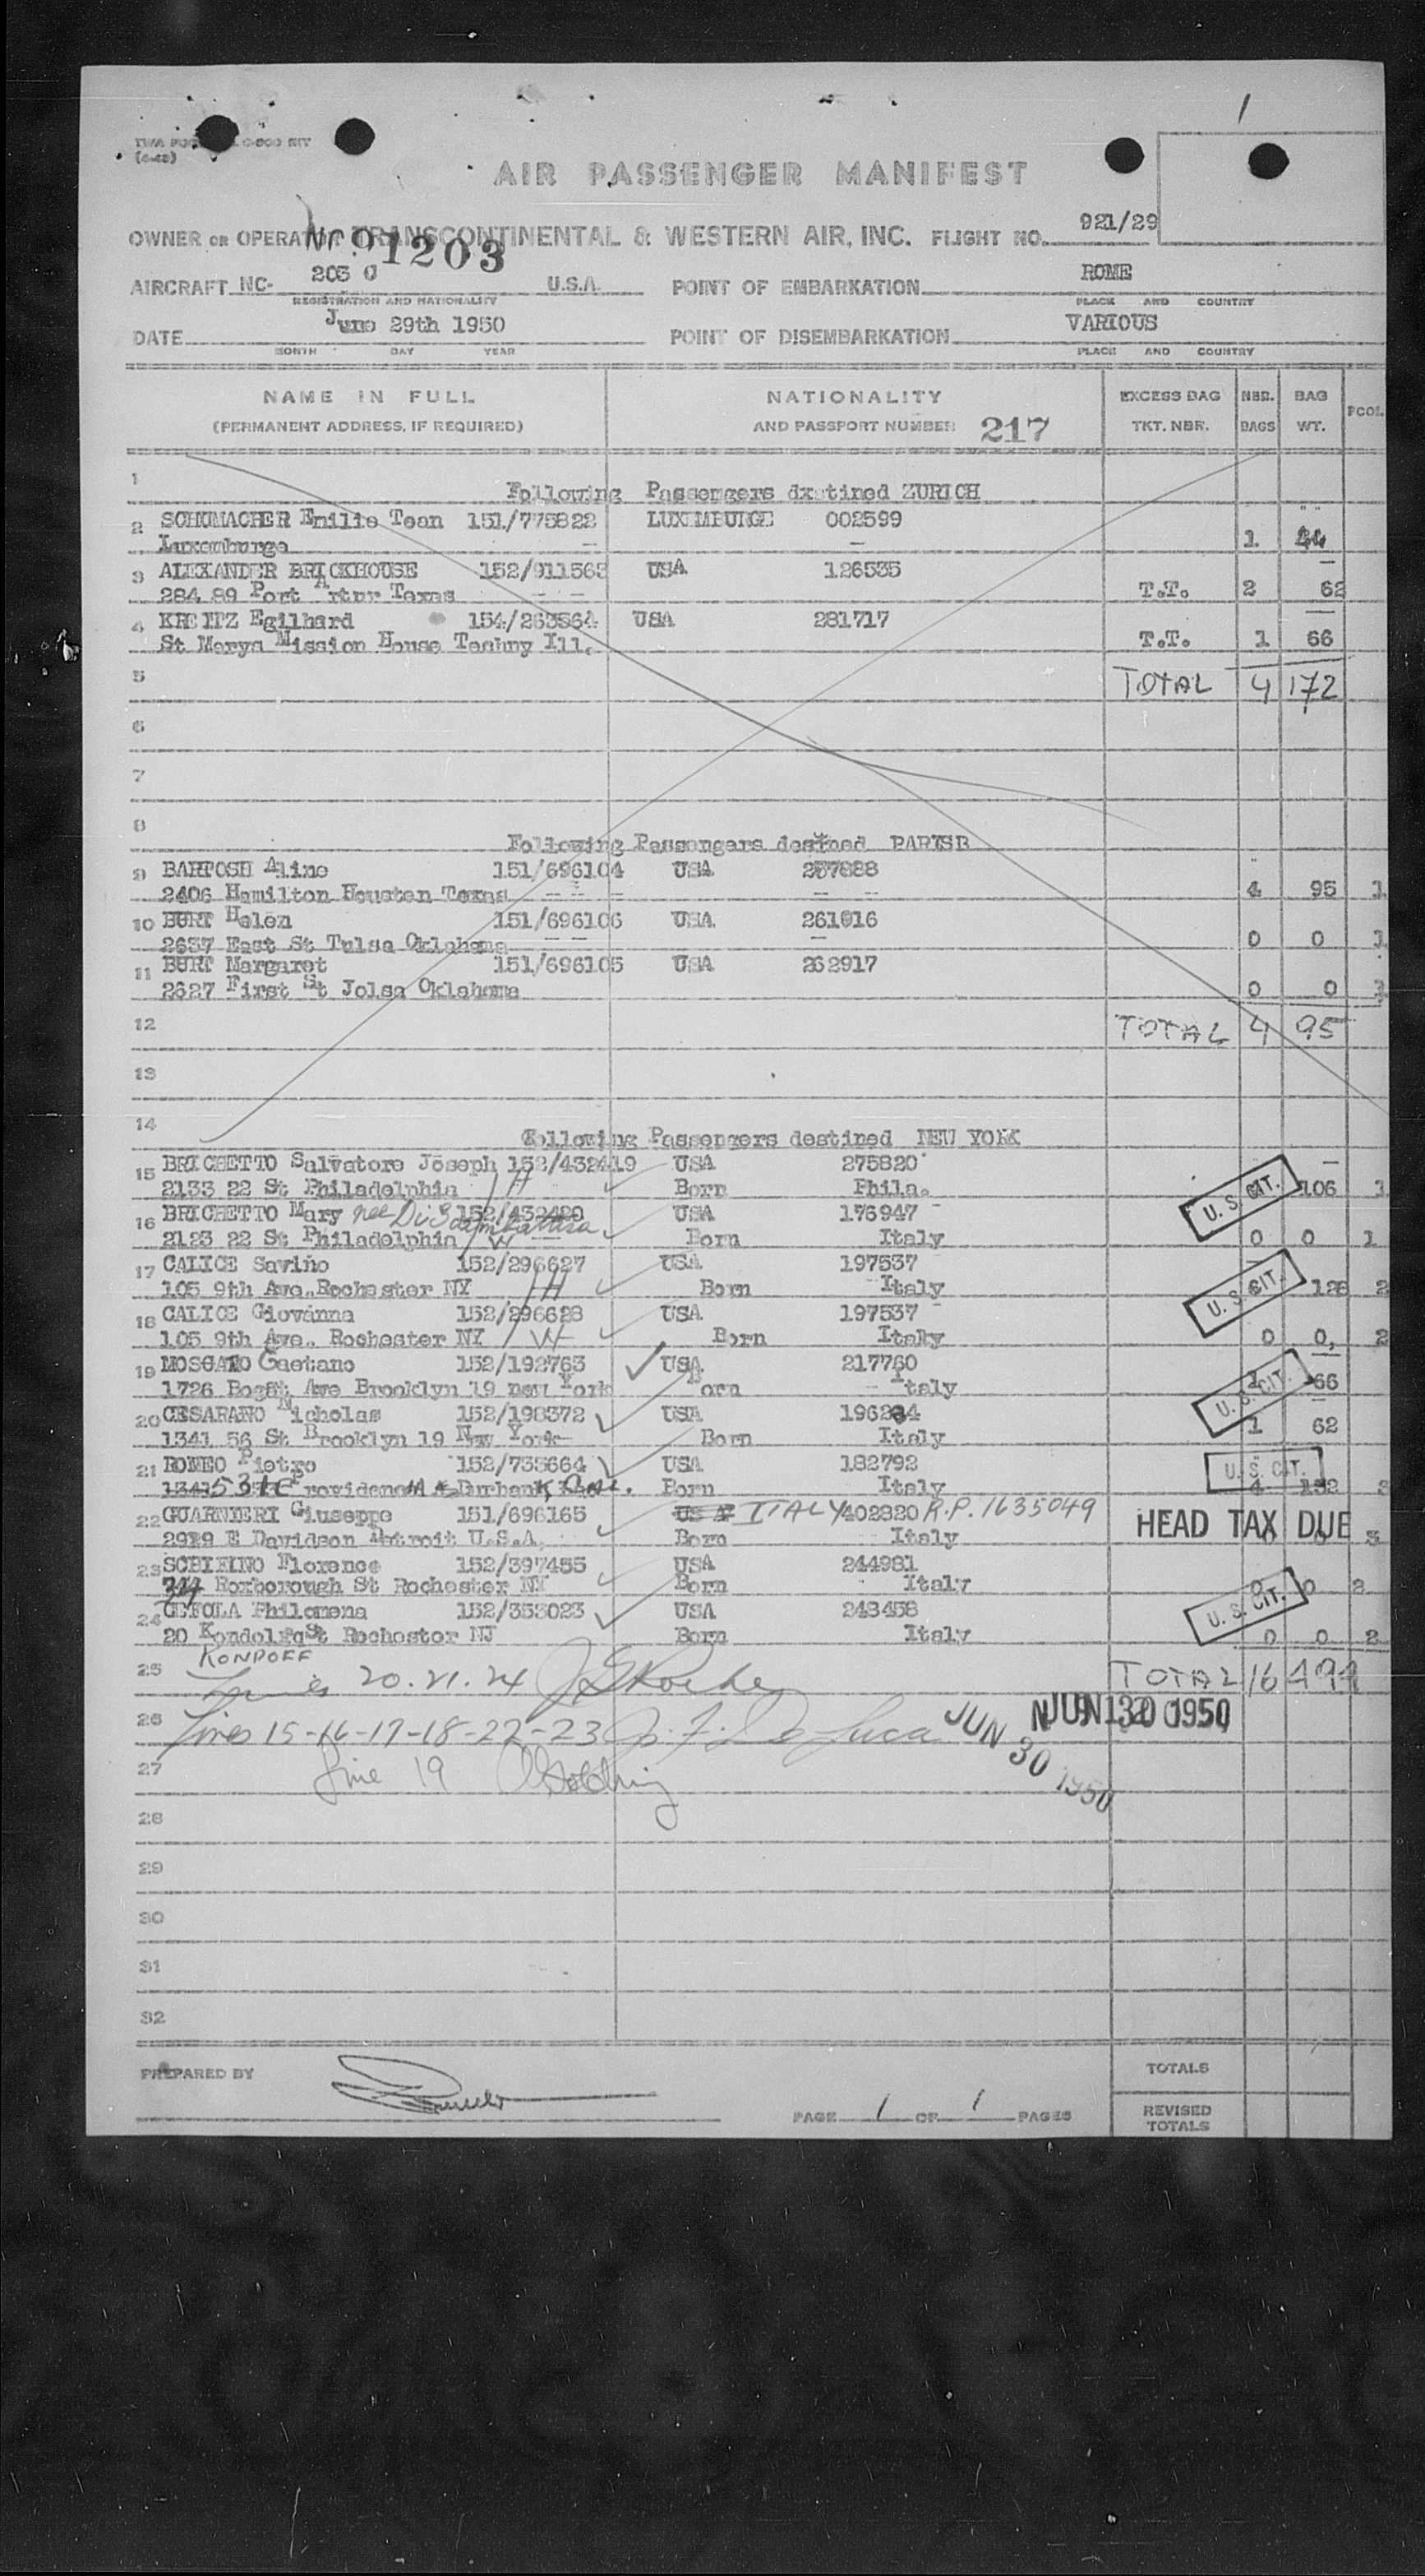 1
(4-48)
AIR PASSENGER MANIFEST
OWNER OR OPERATOR TRANSCONTINENTAL & WESTERN AIR, INC. FLIGHT NO. 921/29
1203
AIRCRAFT NC- U.S.A. POINT OF EMBARKATION ROME
REGISTRATION AND NATIONALITY PLACE AND COUNTRY
DATE June 29th 1950 POINT OF DISEMBARKATION VARIOUS
MONTH DAY YEAR PLACE AND COUNTRY
NAME IN FULL NATIONALITY EXCESS BAG NBR. BAG
(PERMANENT ADDRESS, IF REQUIRED) AND PASSPORT NUMBER 217 TKT. NBR. BAGS WT. PCOL.
1 Following Passengers dxstined ZURICH
2 SCHUMACHER Emilie Tean 151/775822 LUXEMBURGE 002599
Luxemburge 1 44
3 ALEXANDER BRICKHOUSE 152/911563 USA 126535
284 89 Port Artur Texas T.T. 2 62
4 Egilhard 154/263564 USA 281717
St Marys Mission House Techny Ill. T.T. 1 66
5 TOTAL 4 172
6
7
8 Following Passengers destined
9 BARTOSH Aline 151/696104 USA 257888
2406 Hamilton Houston Texas 4 95 1
10 BURT Helen 151/696106 USA 261016
2637 East St Tulsa Oklahoma 0 0 1
11 BURT Margaret 151/696105 USA 262917
2627 First St Jolsa Oklahoma 0 0 1
12 TOTAL 4 95
13
14 Following Passengers destined NEW YORK
15 BRICHETTO Salvatore Joseph 152/432419 USA 275820
2133 22 St Philadelphia H Born Phila. U.S. CIT. 106 1
16 BRICHETTO Mary nee 152/432420 USA 176947
2123 22 St Philadelphia W Born Italy 0 0 1
17 CALICE Savino 152/296627 USA 197537
105 9th Ave. Rochester NY H Born Italy U.S. CIT. 128 2
18 CALICE Giovanna 152/296628 USA 197537
105 9th Ave. Rochester NY W Born Italy 0 0, 2
19 MOSCATO Gaetano 152/192763 USA 217760
1726 Ave Brooklyn 19 new York Born Italy U.S. CIT. 66
20 CESARANO Nicholas 152/198372 USA
1341 56 St Brooklyn 19 New York Born Italy 1 62
21 ROMEO Pietro 152/735664 USA 182792
Providencia Burbank, CAL. Born Italy U.S. CIT. 4 152
22 GUARNIERI Giuseppe 151/696165 ITALY 402320 R.P. 1635049
2929 E Davidson Detroit U.S.A. Born Italy HEAD TAX DUE
23 SCHIFINO Florence 152/397455 USA 244981
Roxborough St Rochester NY Born Italy 0 0 2
24 CETOLA Philomena 152/353023 USA 243458
20 St Rochester NJ Born Italy U.S. CIT. 0 0 2
KONDOFF
25 Lines 20.21.24 TOTAL 16
26 Lines 15-16-17-18-22-23 J. F. De Luca JUN 30 1950 JUN 30 1950
27 Line 19
28
29
30
31
32
PREPARED BY TOTALS
PAGE 1 OF 1 PAGES REVISED
TOTALS